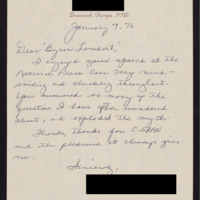 Brunswick, Georgia 31520
January 7, 96
Dear Byron Lambert,
I enjoyed your agents at the
National Press Conv very much -
smiling and chuckling throughout.
You answered so many of the
questions I have often wondered
about, and exploded the myth.
Thanks, thanks for C-SPAN
and the pleasure it always gives
me.
Sincerely,